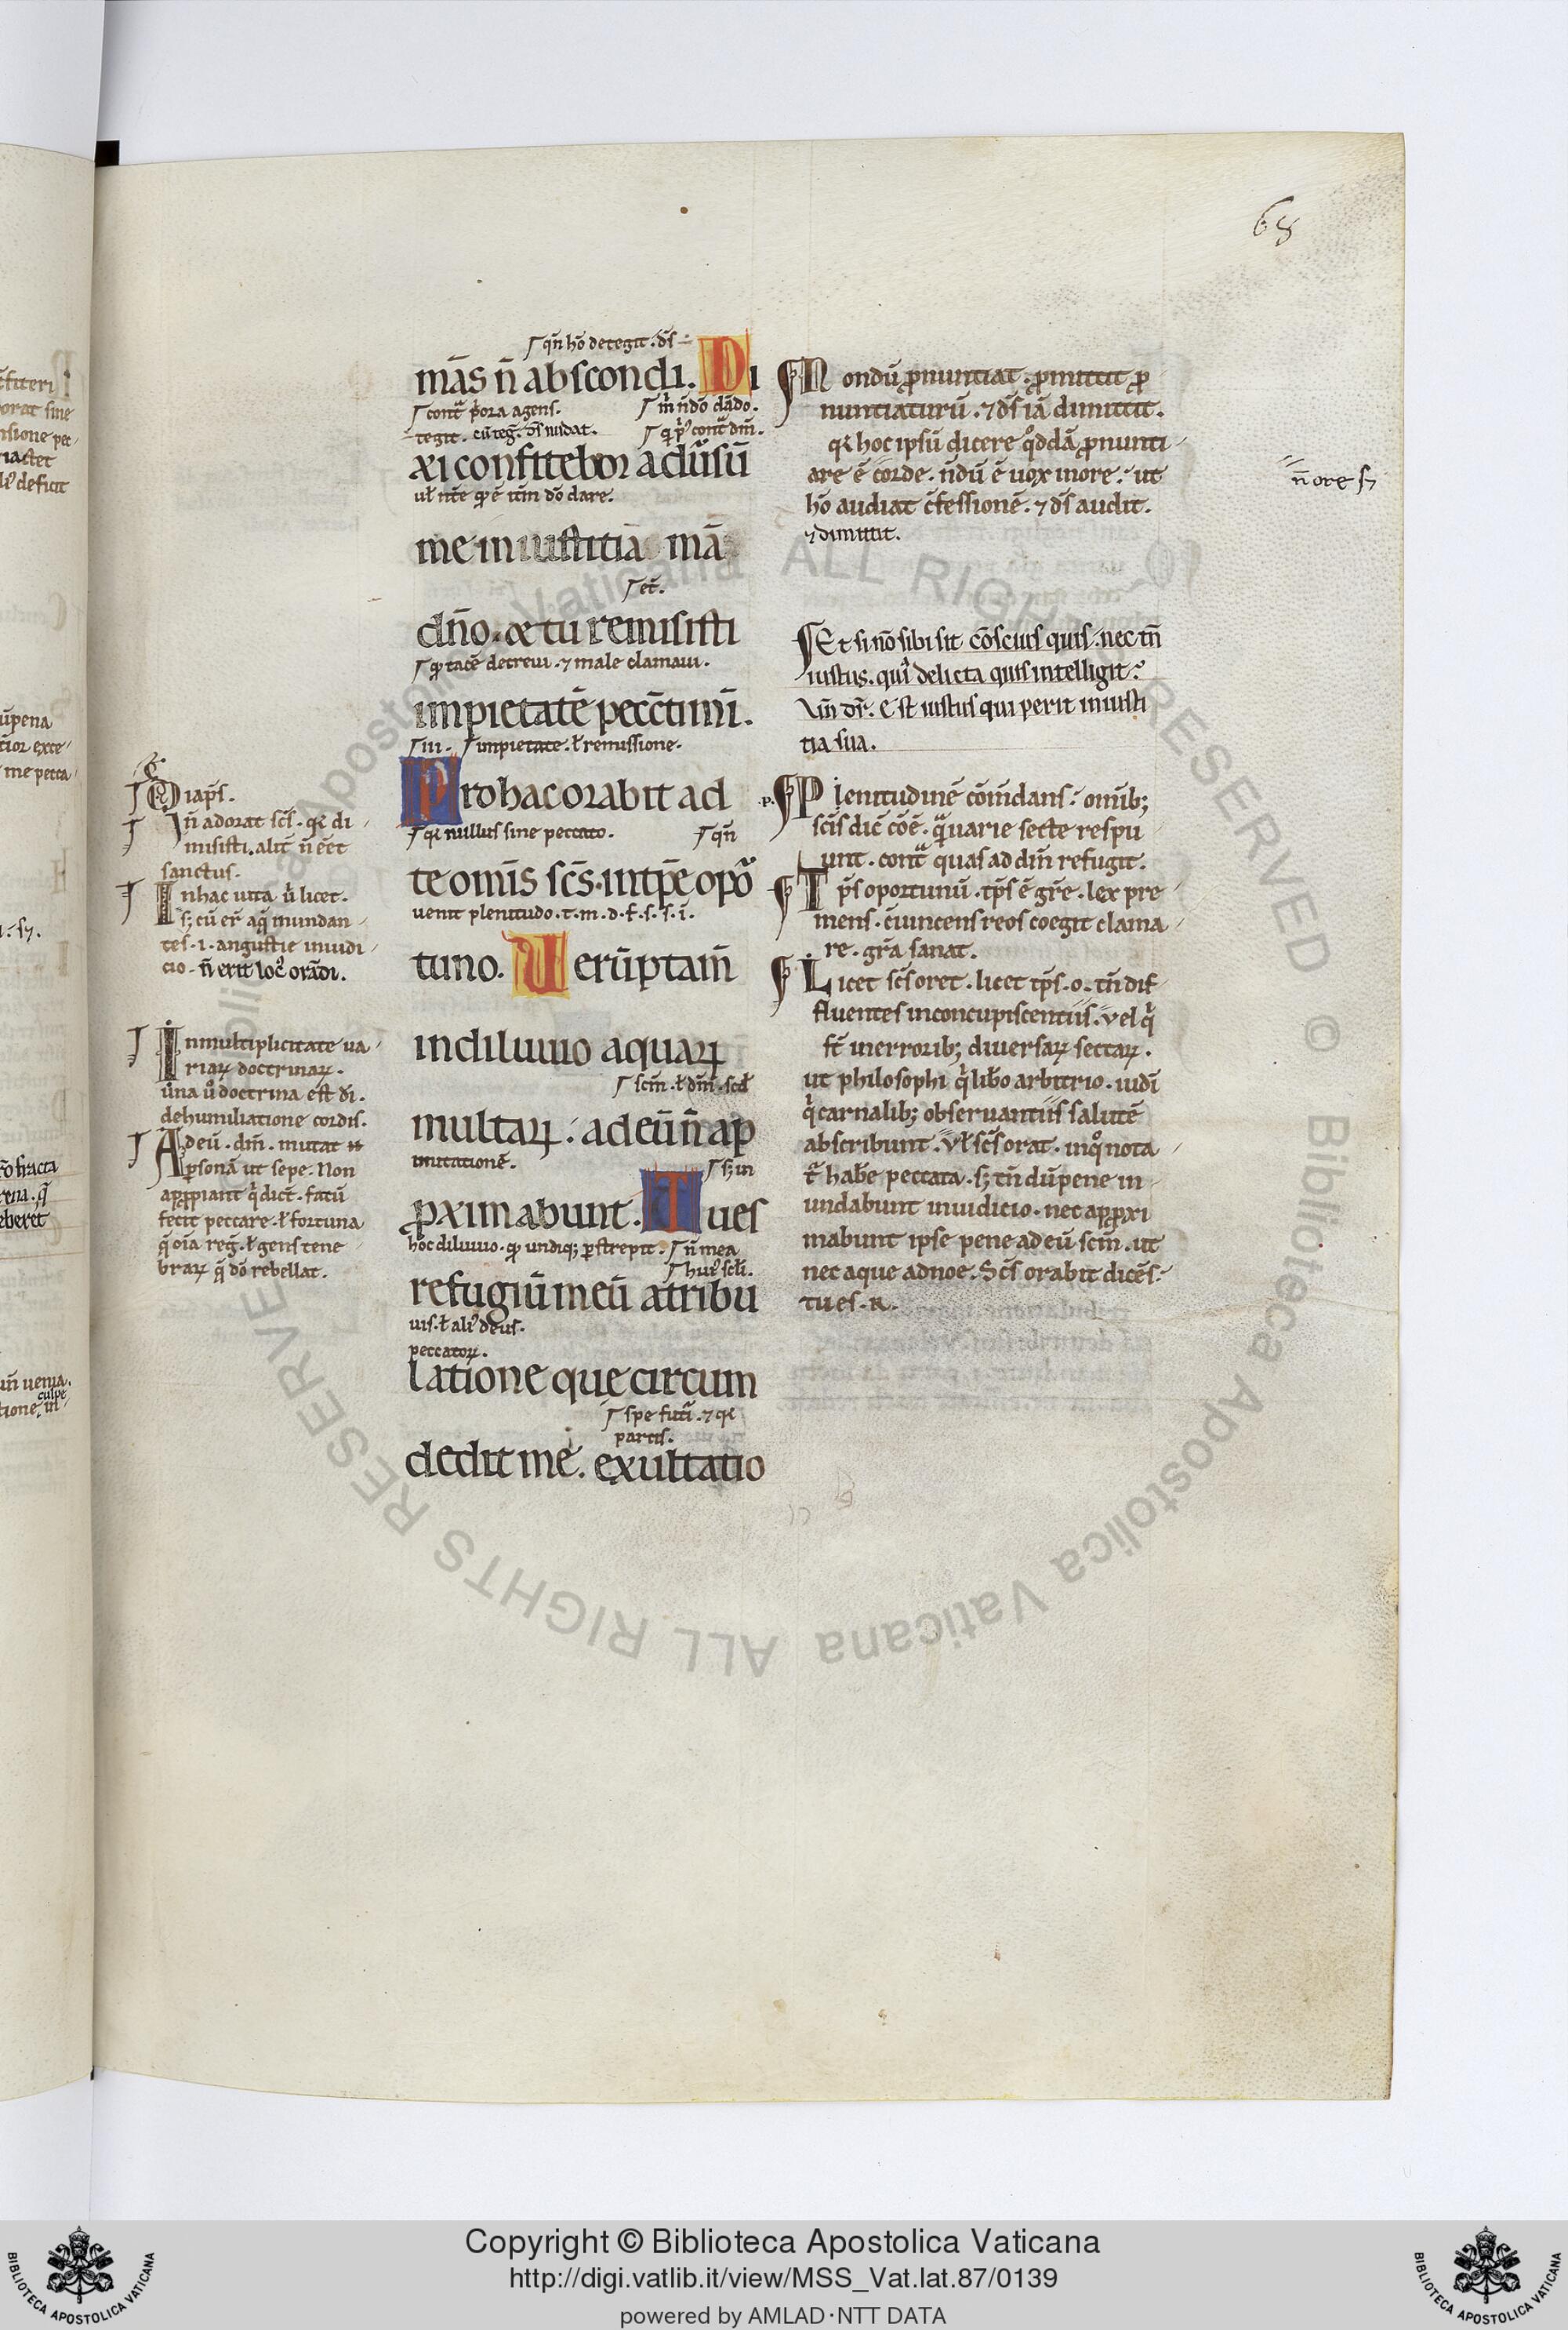 68
⌈qn̄ hō detegit. ds̄
mās n̄ abscondi. Di
⌈contᵃ p̄ora agens.
tegit. cū teḡ. ds̄ nudat.
xi confitebor adūsū
me iniustitiā mā
⌈et̄.
dn̄o. & tu remisisti
⌈tacē decreui. ⁊ male clamaui.
impietatē pecc̄i mı̄.
⌈iii. ⌈impietate. ł remissione.
Pro hac orabit ad
⌈qꝛ nullus sine peccato. ⌈qn̄
te om̄is sc̄s. in tp̄e opoᵗ
uenit plenitudo. t. m. d. f. s. s. ı̄.
tuno. Uerūptam̄
in diluuio aquaꝝ
⌈scm̄. ł dm̄. scd
multaꝝ. ad eū n̄ ap
mutationē. ⌈s; in
ꝓximabunt. Tu es
hoc diluuio. undiq; ꝑstrepit. ⌈n̄ mea
refugiū meū a tribu
uis. ł aliꝰ deus.
peccatoꝝ.
latione que circum
⌈spe futᵃ. ⁊ qꝛ
partis.
dedit me. exultatio
Nondū ꝓnuntiat. ꝓmittit ꝓ
nuntiaturū. ⁊ ds̄ iā dimittit.
qꝛ hoc ipsū dicere qͦddā ꝓnunti
are ē corde. n̄dū ē uox in ore. ut
hō audiat c̄fessionē. ⁊ ds̄ audit.
⁊ dimittit.
n̄ ore s;
Et si nō sibi sit cōscius quis. nec tn̄
iustus. quⁱ delicta quis intelligit?
Vn̄ dr̄. Est iustus qui perit in iusti
tia sua.
Plenitudinē cōm̄dans. omıb;
scis dic̄ cōē. qᵃ uarie secte respu
unt. contᵃ quas ad dm̄ refugit.
Tp̄s oportunū. tp̄s ē gr̄e. lex pre
mens. c̄uincens reos coegit clama
re. grā sanat.
Licet sc̄s oret. licet tp̄s. o. tn̄ dif
fluentes in concupiscentiis. vel qⁱ
st̄ in errorib; diuersaꝝ sectaꝝ.
ut philosophi qⁱ libo arbitrio. iudı̄
qⁱ carnalib; obseruantiis salutē
abscribunt. Vł sc̄s orat. in qͦ nota
tᵃ habe peccata. s; tn̄ dū pene in
undabunt in iudicio. nec apꝓxi
mabunt ipse pene ad eū scm̄. ut
nec aque ad noe. Sc̄s orabit dicēs.
tu es. R.
Diaps̄.
n̄ adorat scs̄. qꝛ di
misisti. alit̄ n̄ eēt
sanctus.
In hac uita ū licet.
s; cū er̄ aq̄ inundan
tes. i. angustie in iudi
cio. n̄ erit locꝰ orādi.
In multiplicitate ua
riaꝝ doctrinaꝝ.
una uͦ doctrina est di.
de humiliatione cordis.
Ad eū. dm̄. mutat
ꝑsonā ut sepe. Non
apꝓpiant qⁱ dict̄. fatū
fecit peccare. ł fortuna
q̄ oīa reḡ. ł gens tene
braꝝ q̄ dō rebellat.
Copyright © Biblioteca Apostolica Vaticana
http://digi.vatlib.it/view/MSS_Vat.lat.87/0139
powered by AMLAD·NTT DATA
BIBLIOTECA APOSTOLICA VATICANA
BIBLIOTECA APOSTOLICA VATICANA
© Biblioteca Apostolica Vaticana ALL RIGHTS RESERVED
© Biblioteca Apostolica Vaticana ALL RIGHTS RESERVED